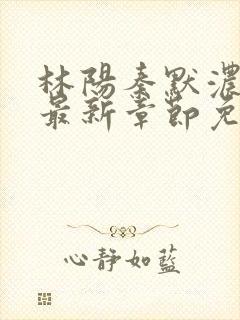 林陽秦默濃
最新章節免
心靜如藍